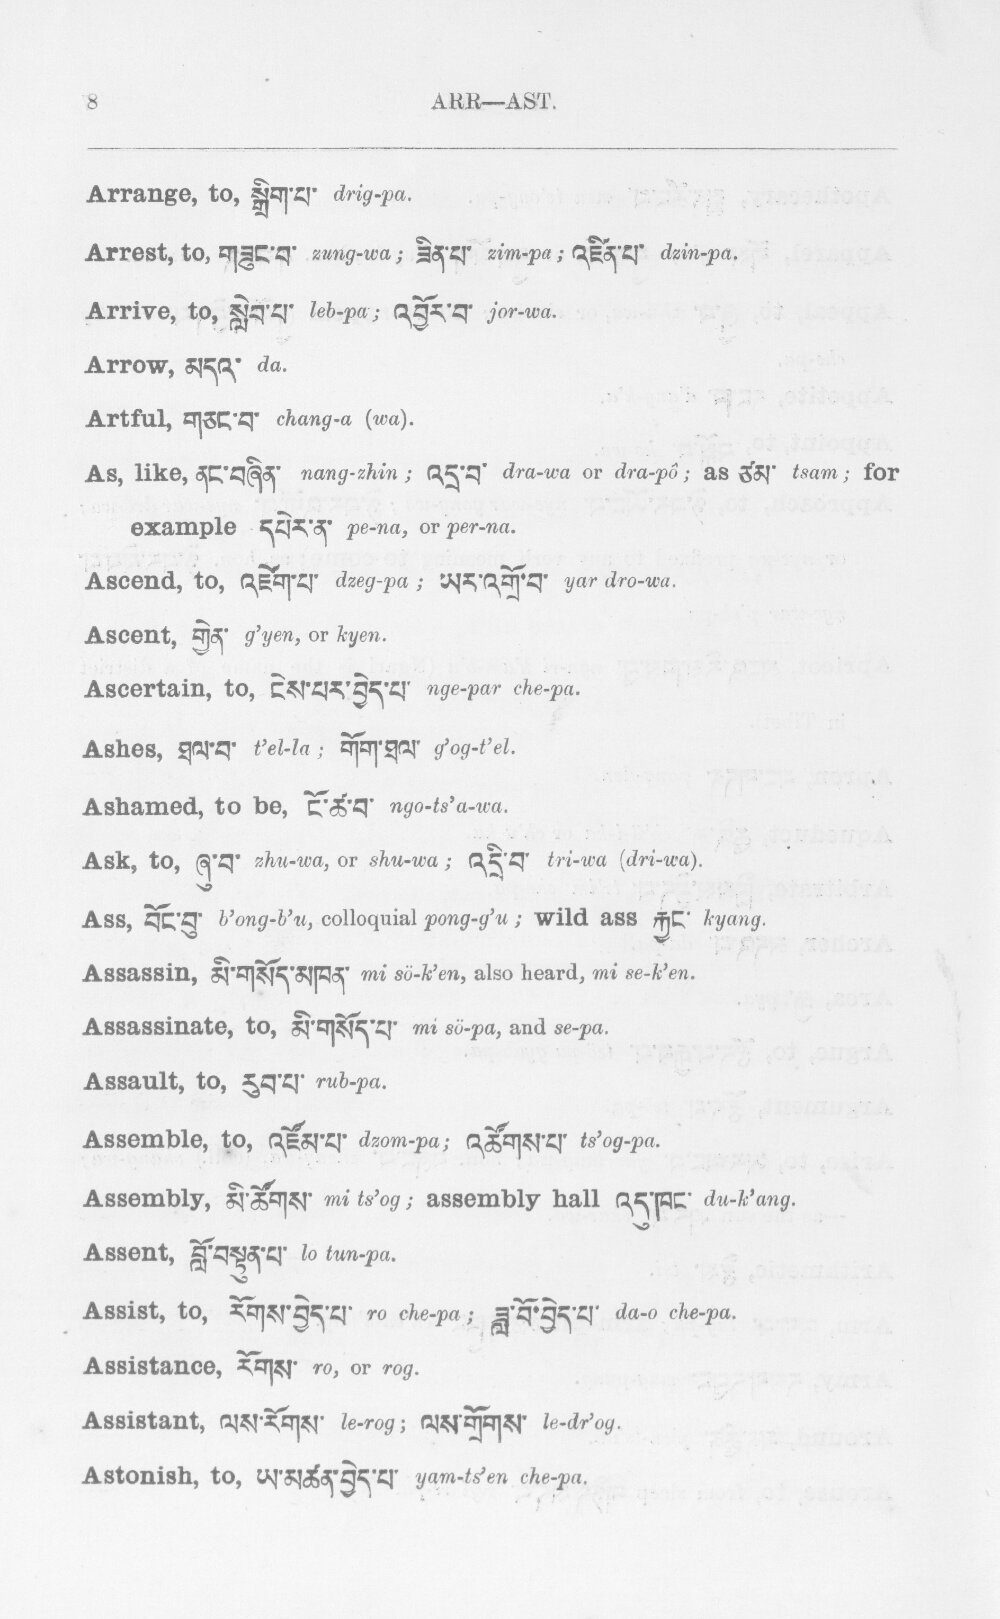 8 ARR—AST.
Arrange, to, སྒྲིག་པ་ drig-pa.
Arrest, to, གཟུང་བ་ zung-wa; ཟིན་པ་ zim-pa; འཛིན་པ་ dzin-pa.
Arrive, to, སླེབ་པ་ leb-pa; འབྱོར་བ་ jor-wa.
Arrow, མདའ་ da.
Artful, གཅང་བ་ chang-a (wa).
As, like, ནང་བཞིན་ nang-zhin; འདྲ་བ་ dra-wa or dra-pô; as ཙམ་ tsam; for
example དཔེར་ན་ pe-na, or per-na.
Ascend, to, འཛེག་པ་ dzeg-pa; ཡར་འགྲོ་བ་ yar dro-wa.
Ascent, གྱེན་ g'yen, or kyen.
Ascertain, to, ངེས་པར་བྱེད་པ་ nge-par che-pa.
Ashes, ཐལ་བ་ t'el-la; གོག་ཐལ་ g'og-t'el.
Ashamed, to be, ངོ་ཚ་བ་ ngo-ts'a-wa.
Ask, to, ཞུ་བ་ zhu-wa, or shu-wa; འདྲི་བ་ tri-wa (dri-wa).
Ass, བོང་བུ་ b'ong-b'u, colloquial pong-g'u; wild ass རྐྱང་ kyang.
Assassin, མི་གསོད་མཁན་ mi sö-k'en, also heard, mi se-k'en.
Assassinate, to, མི་གསོད་པ་ mi sö-pa, and se-pa.
Assault, to, རུབ་པ་ rub-pa.
Assemble, to, འཛོམ་པ་ dzom-pa; འཚོགས་པ་ ts'og-pa.
Assembly, མི་ཚོགས་ mi ts'og; assembly hall འདུ་ཁང་ du-k'ang.
Assent, བློ་བསྟུན་པ་ lo tun-pa.
Assist, to, རོགས་བྱེད་པ་ ro che-pa; ཟླ་བོ་བྱེད་པ་ da-o che-pa.
Assistance, རོགས་ ro, or rog.
Assistant, ལས་རོགས་ le-rog; ལས་གྲོགས་ le-dr'og.
Astonish, to, ཡ་མཚན་བྱེད་པ་ yam-ts'en che-pa.